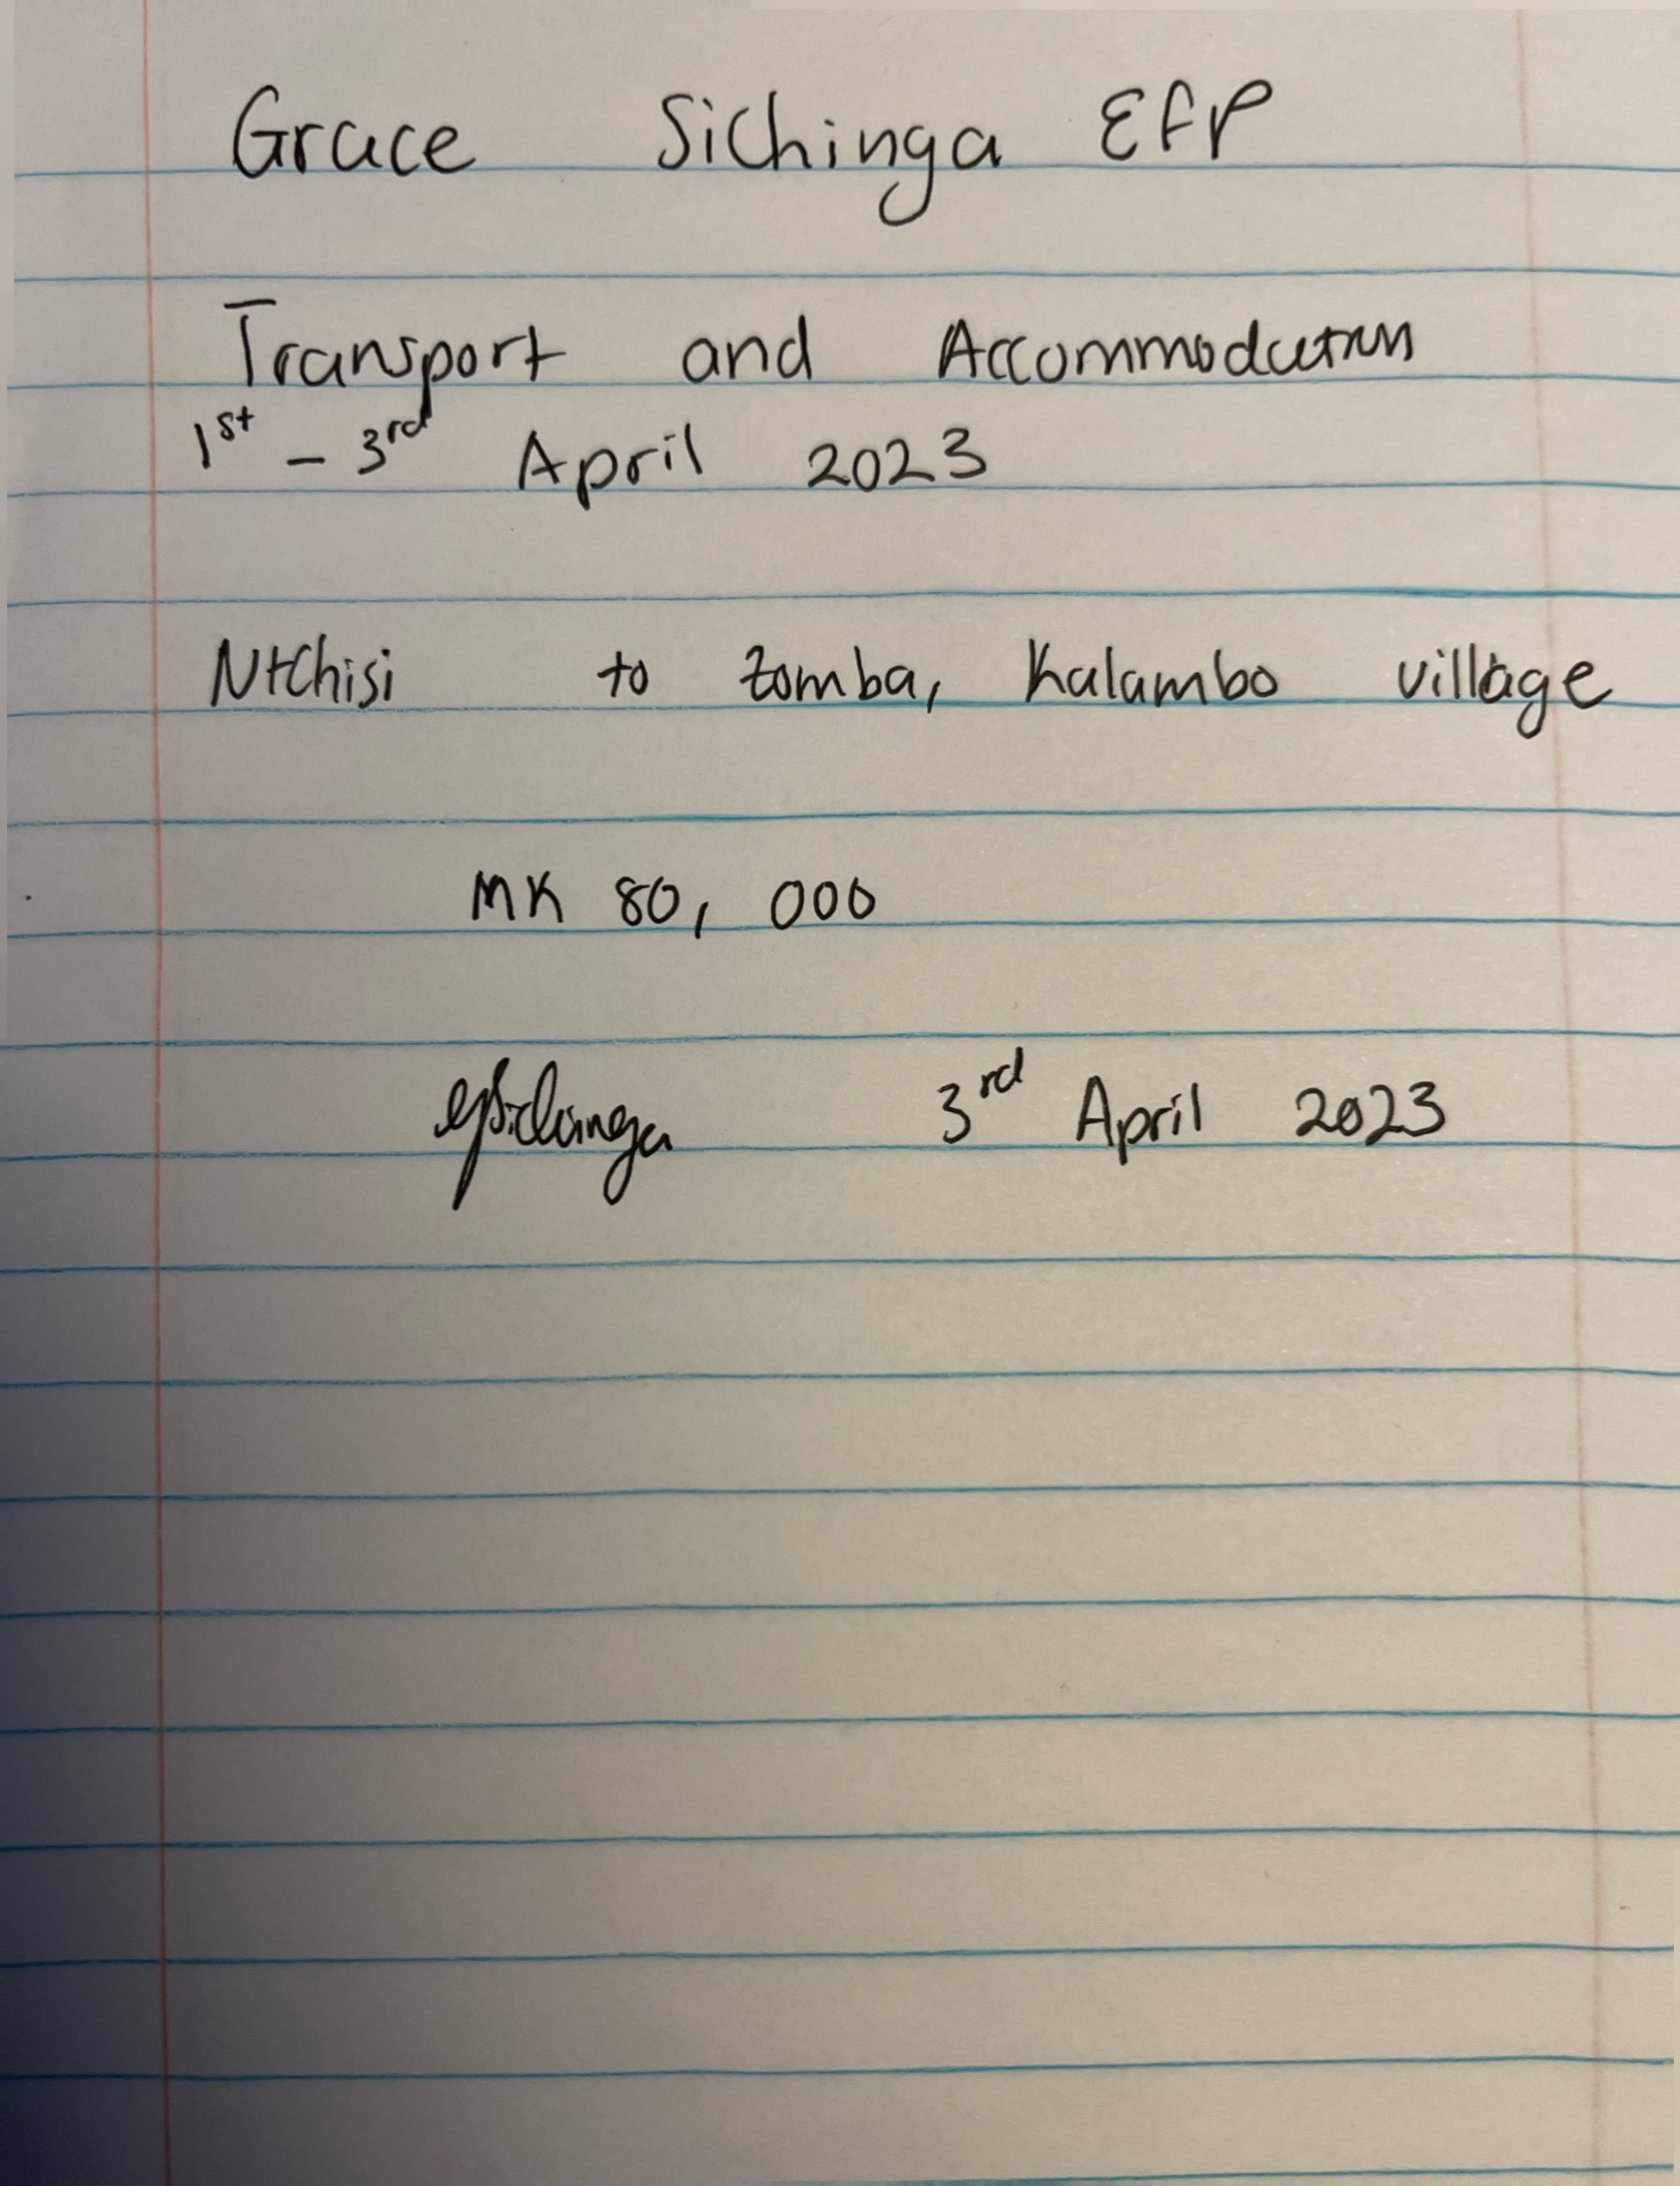 Grace Sichinga EFP
Transport and Accommodation
1st - 3rd April 2023
Ntchisi to Zomba, Kalambo village
MK 80, 000
GSichinga 3rd April 2023